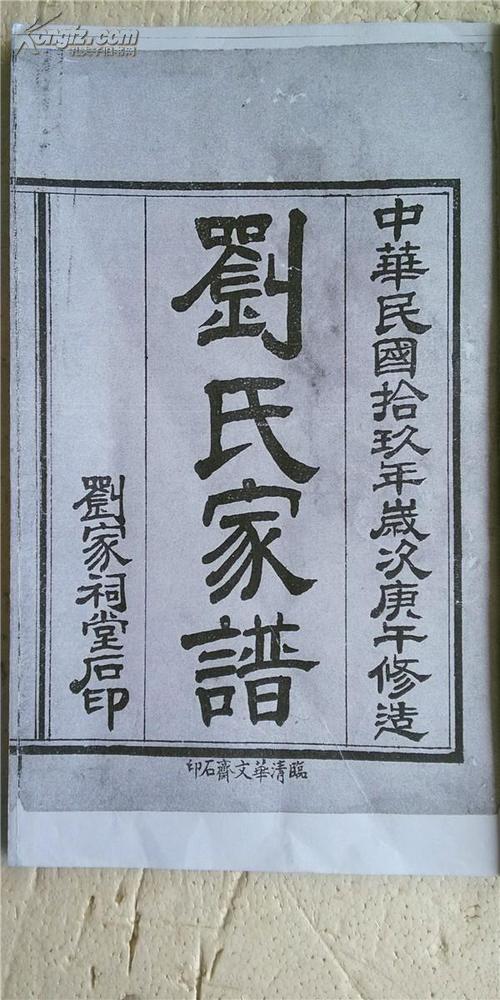 Kongfz.com
孔夫子旧书网
中華民國拾玖年歲次庚午修造
劉氏家譜
劉家祠堂石印
臨清華文齋石印